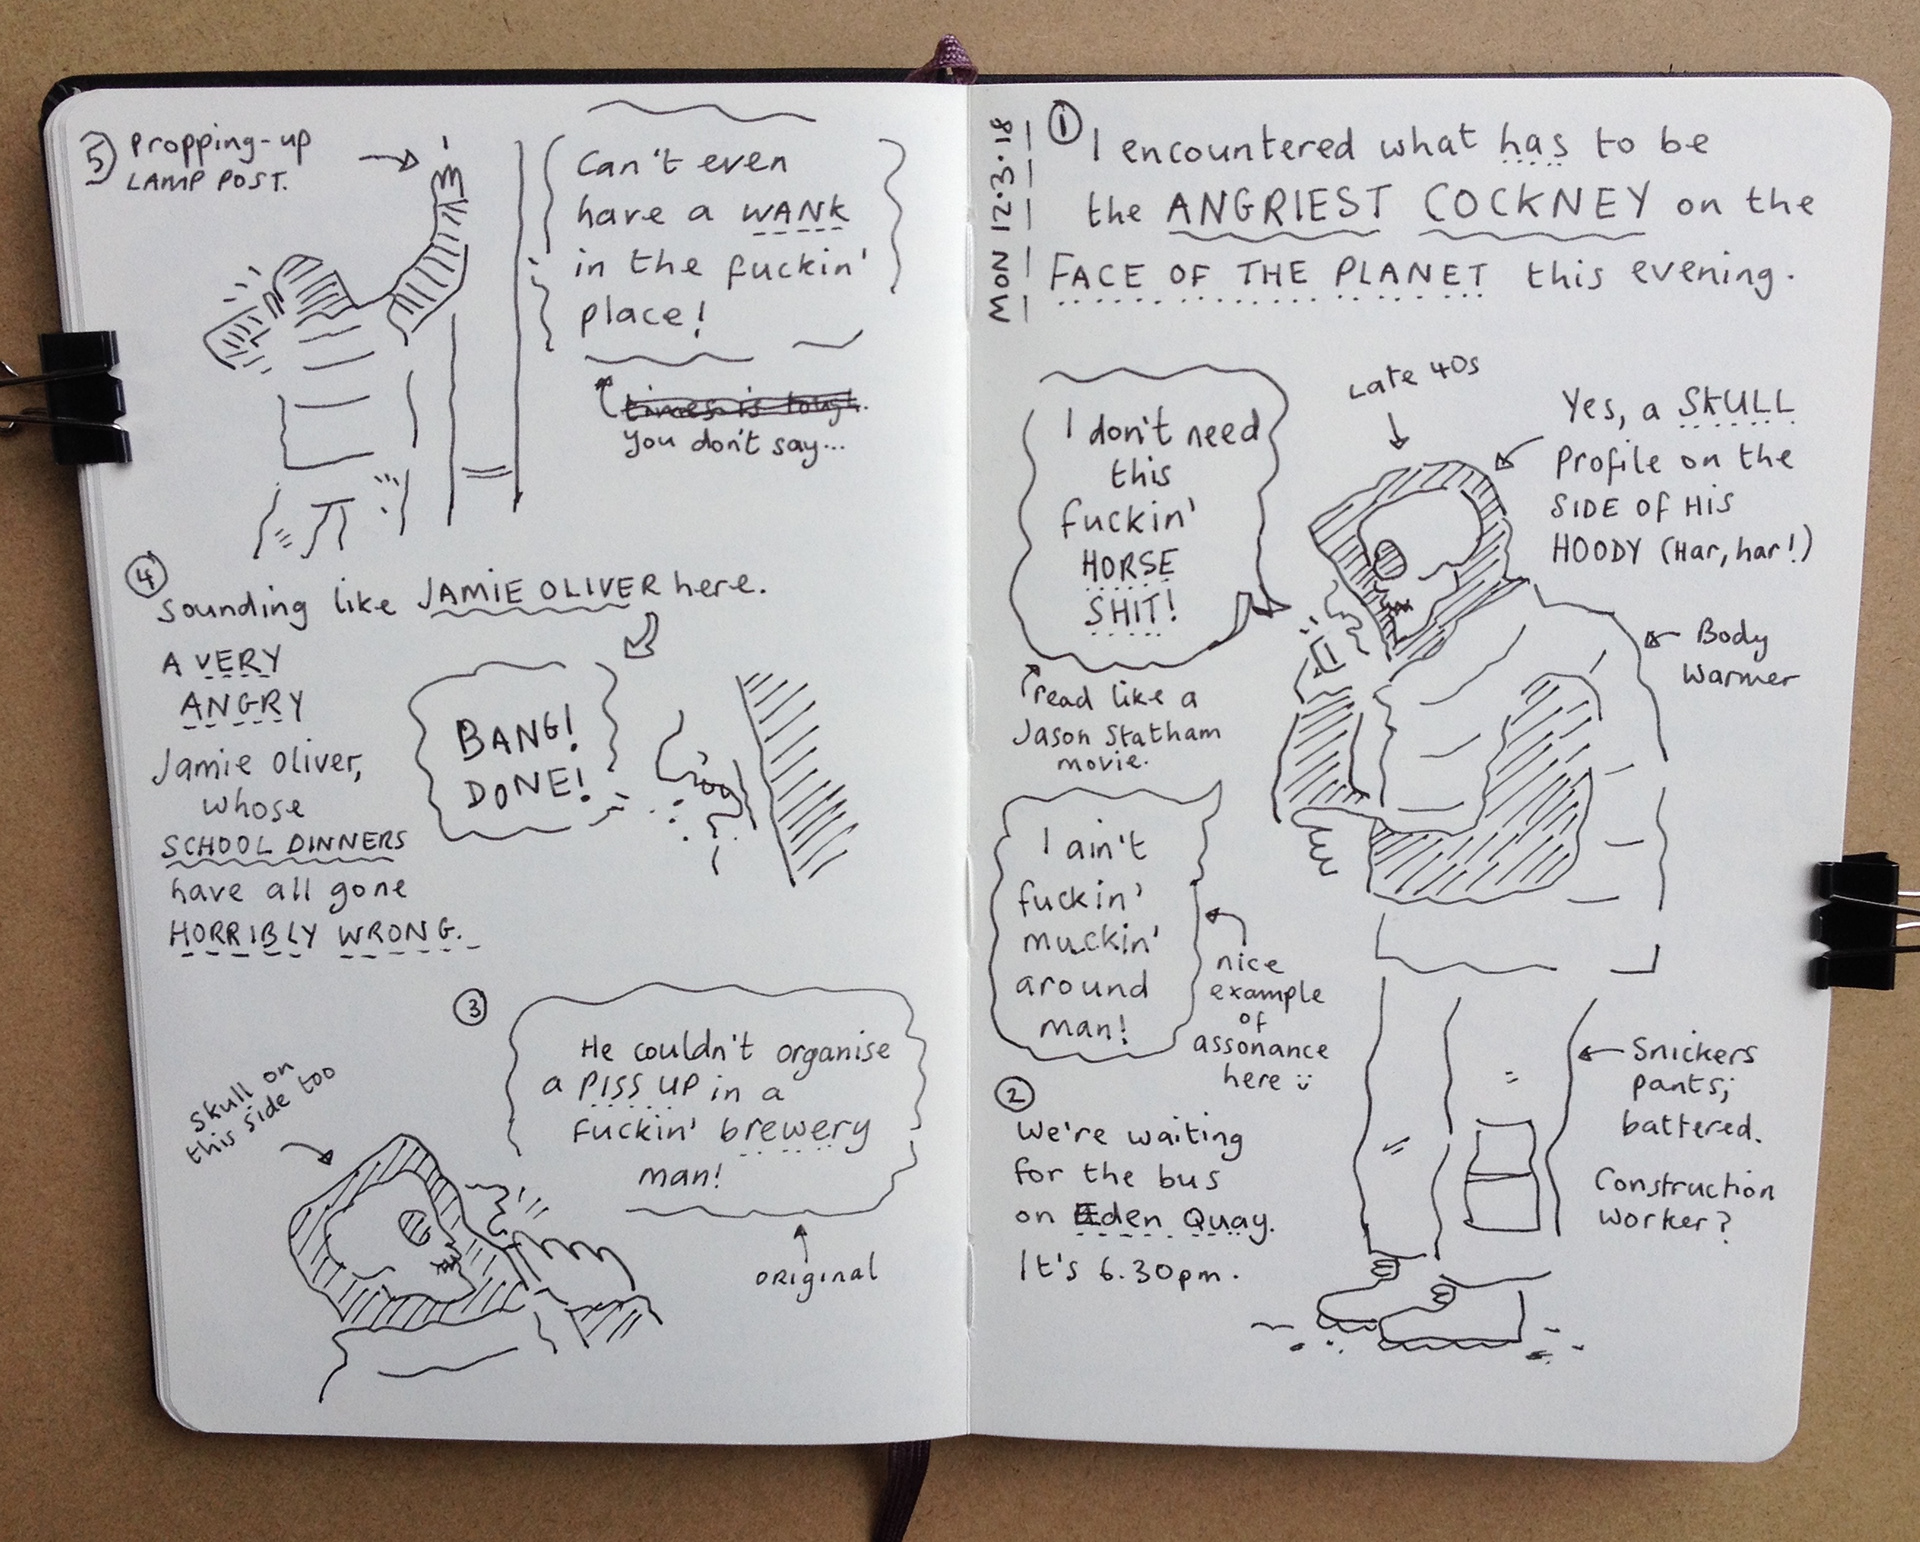 MON 12.3.18
① I encountered what has to be
the ANGRIEST COCKNEY on the
FACE OF THE PLANET this evening.
I don't need
this
fuckin'
HORSE
SHIT!
read like a
Jason Statham
movie.
Late 40s
Yes, a SKULL
profile on the
SIDE OF HIS
HOODY (Har, har!)
Body
warmer
I ain't
fuckin'
muckin'
around
man!
nice
example
of
assonance
here ü
Snickers
pants;
battered.
Construction
worker?
② We're waiting
for the bus
on Eden Quay.
It's 6.30pm.
③ He couldn't organise
a PISS UP in a
fuckin' brewery
man!
original
skull on
this side too
④ Sounding like JAMIE OLIVER here.
A VERY
ANGRY
Jamie Oliver,
whose
SCHOOL DINNERS
have all gone
HORRIBLY WRONG.
BANG!
DONE!
⑤ Propping-up
LAMP POST.
Can't even
have a WANK
in the fuckin'
place!
times is tough.
you don't say...